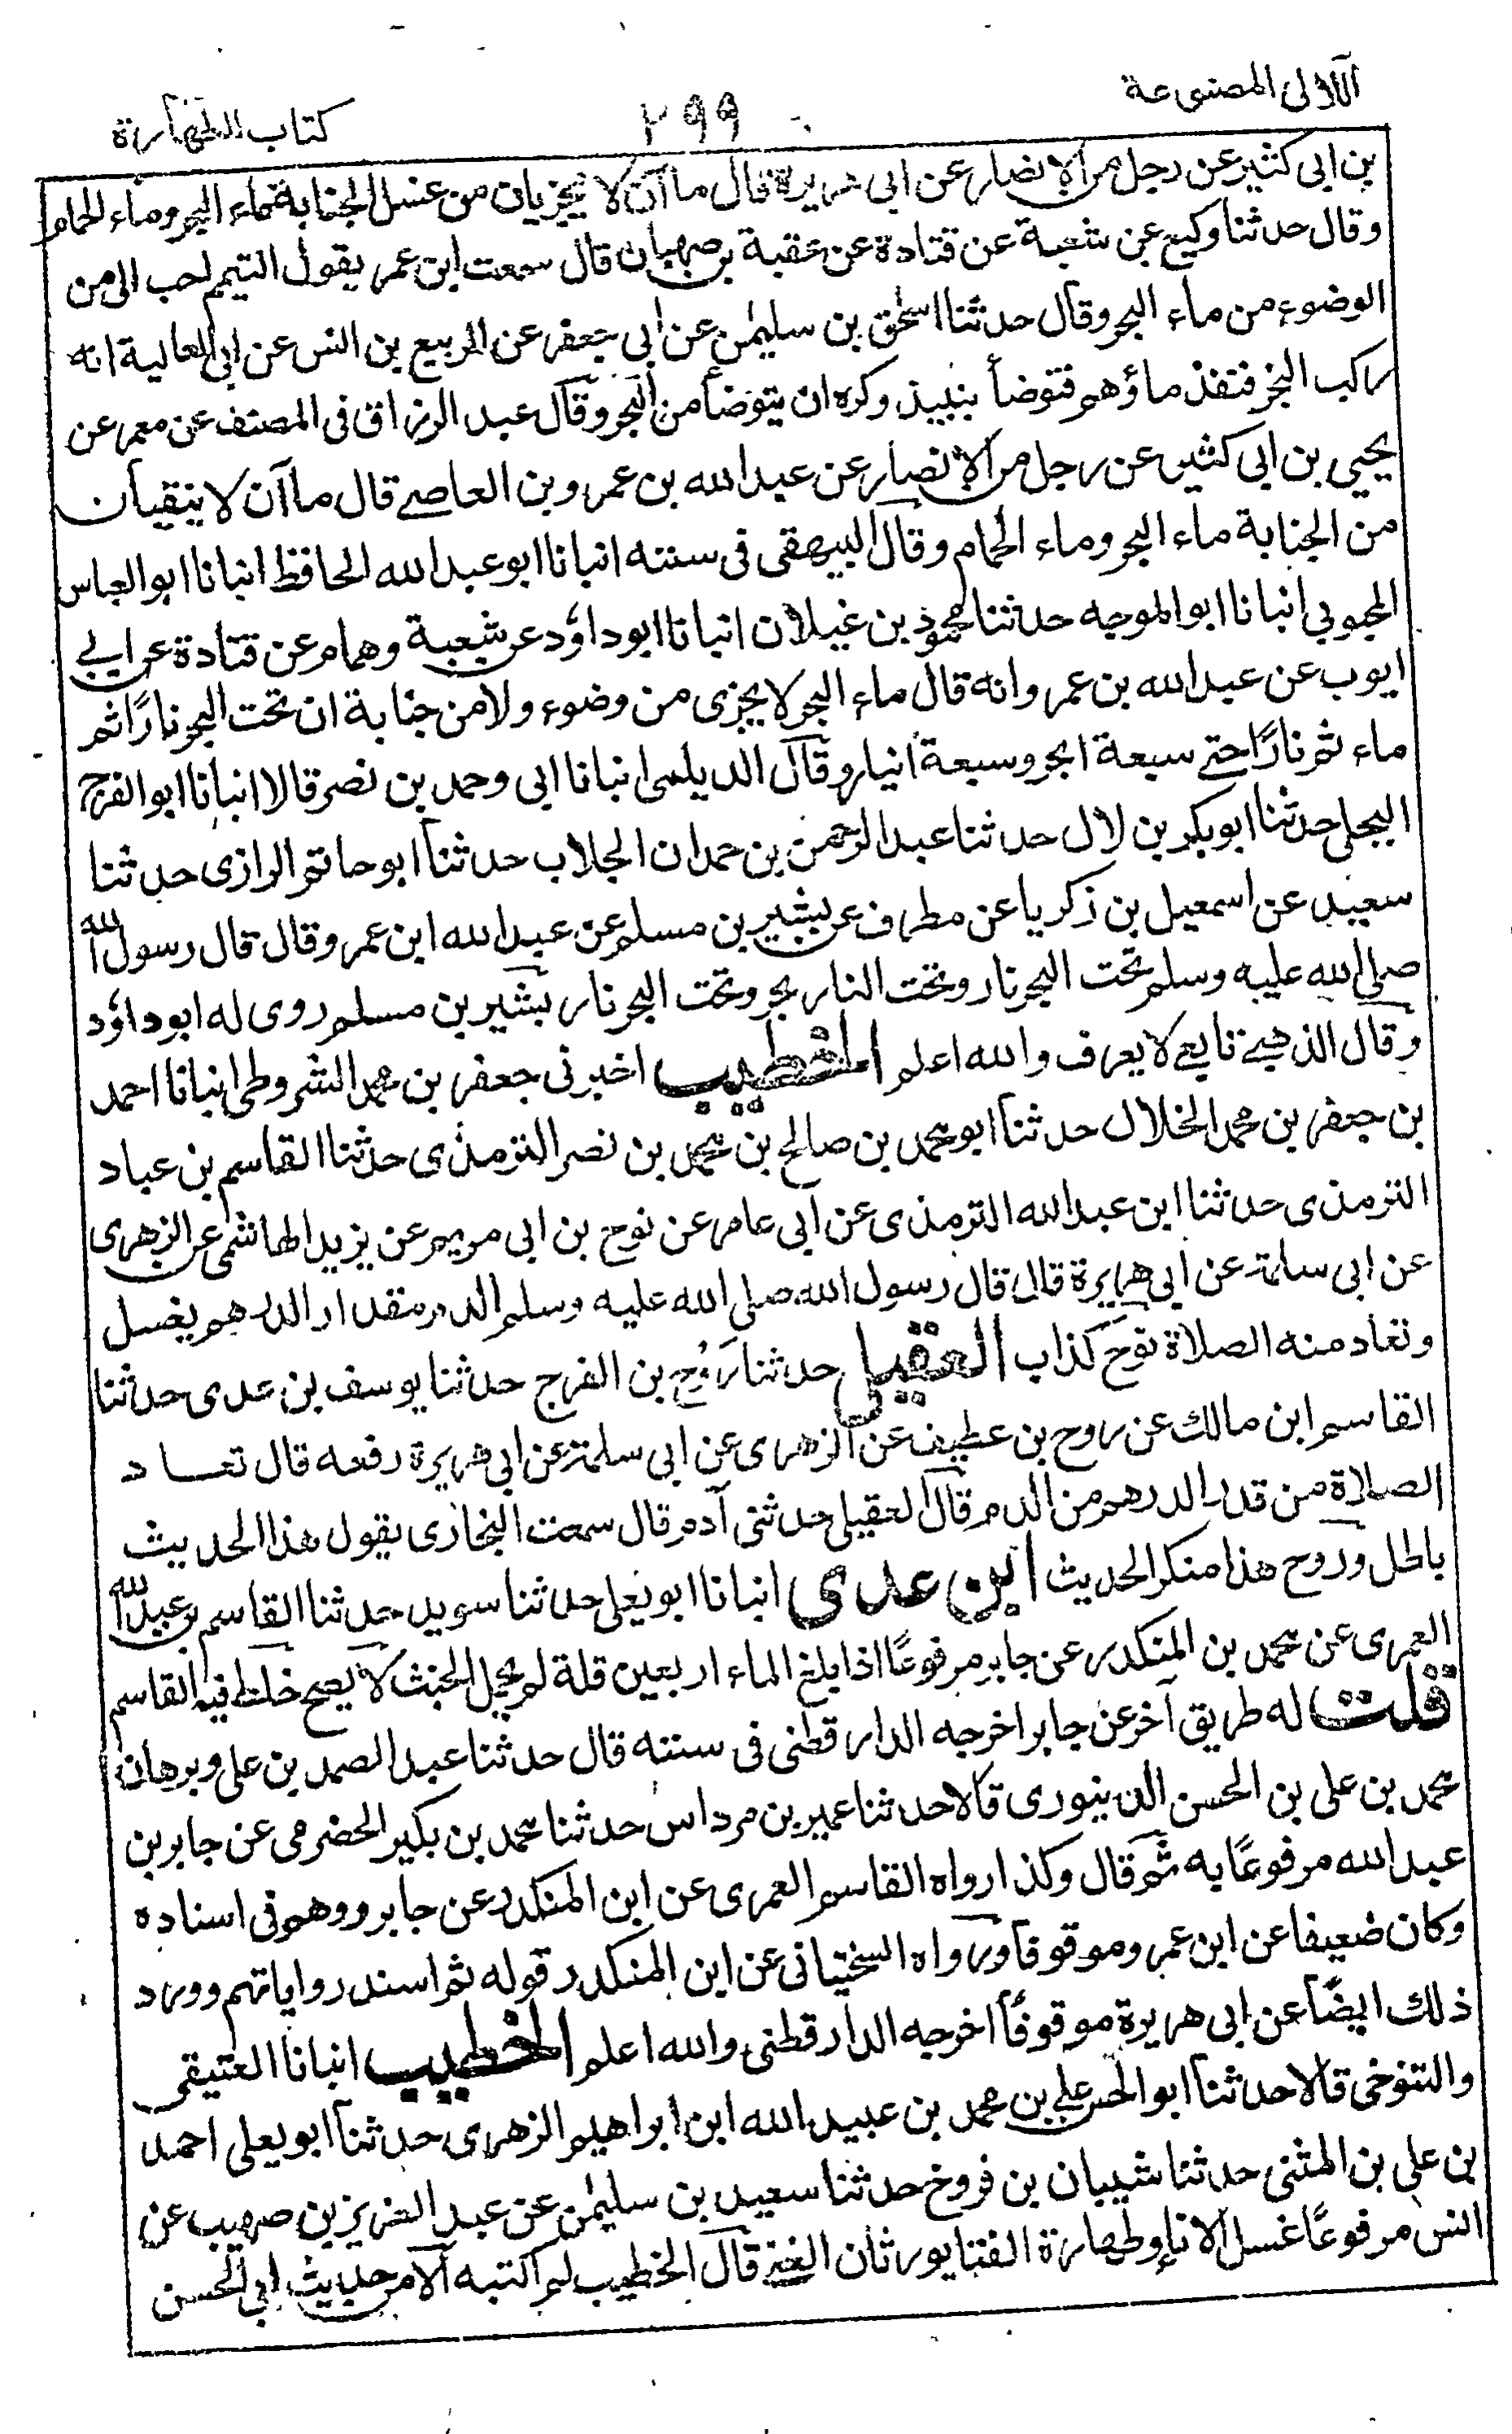 الآلالى المصنوعة
٢٩٩
كتاب الطهارة
بن ابى كثير عن رجل من الانصار عن ابى هريرة قال ماآن لا يجزيان من غسل الجنابة ماء البحر وماء الحمام
وقال حدثنا وكيع عن شعبة عن قتادة عن عقبة بن صهبان قال سمعت ابن عمر يقول التيمم احب الى من
الوضوء من ماء البحر وقال حدثنا اسحٰق بن سليمٰن عن ابى جعفر عن الربيع بن انس عن ابى العالية انه
ركب البحر فنفذ ماؤهم فتوضأ بنبيذ وكره ان يتوضأ من البحر وقال عبد الرزاق فى المصنف عن معمر عن
يحيى بن ابى كثير عن رجل من الانصار عن عبد الله بن عمرو بن العاصے قال ماآن لا ينقيان
من الجنابة ماء البحر وماء الحمام وقال البيهقى فى سننه انبانا ابو عبد الله الحافظ انبانا ابو العباس
المحبوبي انبانا ابو الموجه حدثنا محمود بن غيلان انبانا ابو داؤد عن شعبة وهمام عن قتادة عن ابے
ايوب عن عبد الله بن عمرو انه قال ماء البحر لا يجزى من وضوء ولا من جنابة ان تحت البحر نارًا ثم
ماء ثم نارًا حتے سبعة ابحر وسبعة انيار وقال الديلمى انبانا ابى وحمد بن نصر قالا انبانا ابو الفرج
البجلى حدثنا ابو بكر بن لال حدثنا عبد الرحمٰن بن حمدان الجلاب حدثنا ابو حاتم الرازى حدثنا
سعيد عن اسمعيل بن زكريا عن مطرف عن بشير بن مسلم عن عبد الله ابن عمرو قال قال رسول الله
صلى الله عليه وسلم تحت البحر نار وتحت النار بحر وتحت البحر نار بشير بن مسلم روى له ابو داؤد
وقال الذهبے تابعے لا يعرف والله اعلم الخطيب اخبرنى جعفر بن محمد الشروطى انبانا احمد
بن جعفر بن محمد الخلال حدثنا ابو محمد بن صالح بن محمد بن نصر الترمذى حدثنا القاسم بن عباد
الترمذى حدثنا ابن عبد الله الترمذى عن ابى عامر عن نوح بن ابى مريم عن يزيد الهاشمى عن الزهرى
عن ابى سلمة عن ابى هريرة قال قال رسول الله صلى الله عليه وسلم الدم مقدار الدرهم يغسل
وتعاد منه الصلاة نوح كذاب العقيلى حدثنا رَوْح بن الفرج حدثنا يوسف بن عدى حدثنا
القاسم ابن مالك عن روح بن عطيف عن الزهرى عن ابى سلمة عن ابى هريرة رفعه قال تعاد
الصلاة من قدر الدرهم من الدم قال العقيلى حدثنى آدم قال سمعت البخارى يقول هذا الحديث
باطل وروح هذا منكر الحديث ابن عدى انبانا ابو يعلى حدثنا سويد حدثنا القاسم بن عبد الله
العمرى عن محمد بن المنكدر عن جابر مرفوعًا اذا بلغ الماء اربعين قلة لم يحمل الخبث لا يصح خلط فيه القاسم
قلت له طريق آخر عن جابر اخرجه الدارقطنى فى سننه قال حدثنا عبد الصمد بن على وبرهان
محمد بن على بن الحسن الدينورى قالا حدثنا عمير بن مرداس حدثنا محمد بن بكير الحضرمى عن جابر بن
عبد الله مرفوعًا به ثم قال وكذا رواه القاسم العمرى عن ابن المنكدر عن جابر ووهم فى اسناده
وكان ضعيفا عن ابن عمرو موقوفا ورواه السختيانى عن ابن المنكدر قوله ثم اسند رواياتهم وورد
ذلك ايضًا عن ابى هريرة موقوفًا اخرجه الدارقطنى والله اعلم الخطيب انبانا العتيقى
والتنوخى قالا حدثنا ابو الحسن على بن محمد بن عبيد الله ابن ابراهيم الزهرى حدثنا ابو يعلى احمد
بن على بن المثنى حدثنا شيبان بن فروخ حدثنا سعيد بن سليمٰن عن عبد العزيز بن صهيب عن
انس مرفوعًا غسل الاناء وطهارة الفنا يورثان الغنى قال الخطيب لم اكتبه الا من حديث ابى الحسن